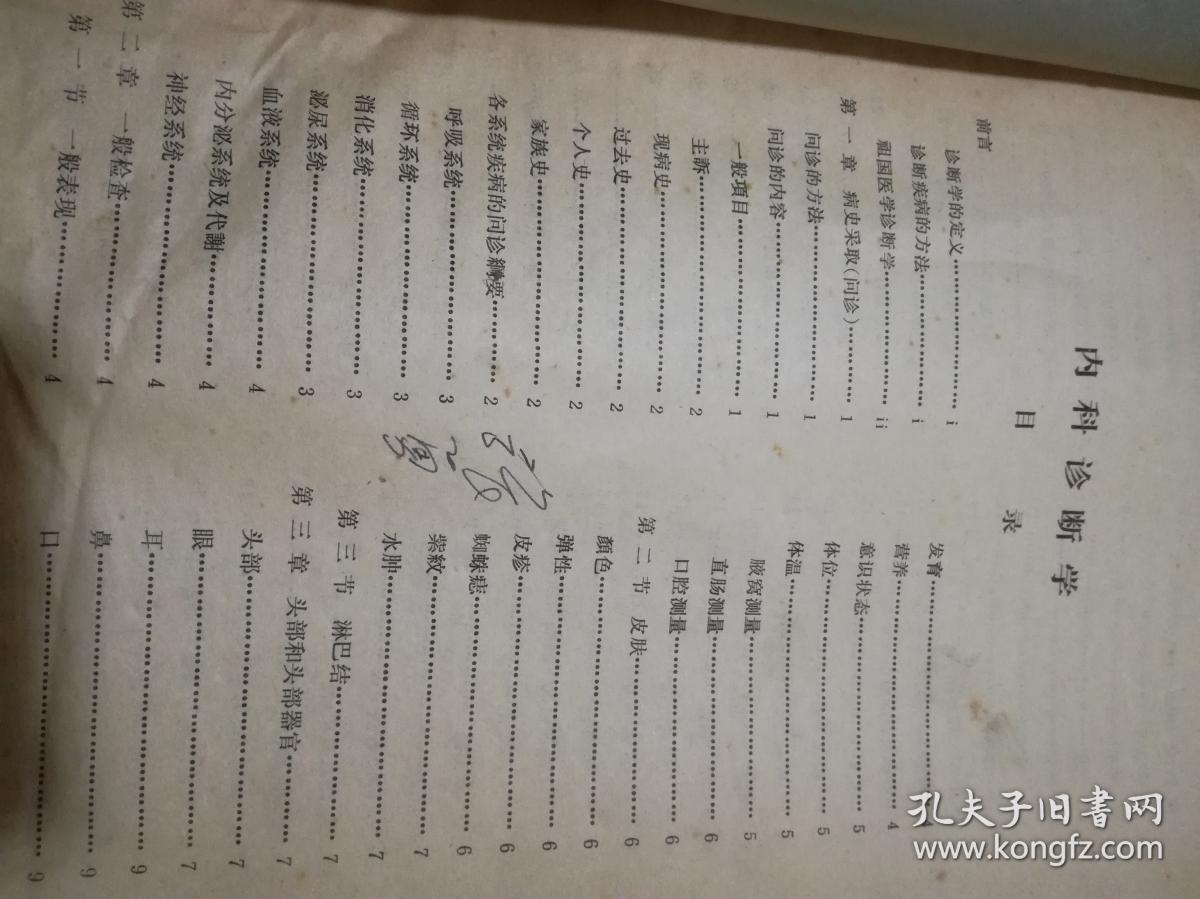 内科诊断学
目录
前言
诊断学的定义…………………i
诊断疾病的方法………………i
祖国医学诊断学………………ii
第一章 病史采取(问诊)………1
问诊的方法……………………1
问诊的内容……………………1
一般項目………………………1
主訴……………………………2
现病史…………………………2
过去史…………………………2
个人史…………………………2
家族史…………………………2
各系统疾病的问诊綱要………2
呼吸系统………………………3
循环系统………………………3
消化系统………………………3
泌尿系统………………………3
血液系统………………………4
内分泌系统及代謝……………4
神经系统………………………4
第二章 一般检查………………4
第一节 一般表现………………4
发育……………………………4
营养……………………………4
意识状态………………………5
体位……………………………5
体温……………………………5
腋窝测量………………………5
直肠测量………………………6
口腔测量………………………6
第二节 皮肤……………………6
顏色……………………………6
弹性……………………………6
皮疹……………………………6
蜘蛛痣…………………………6
紫紋……………………………7
水肿……………………………7
第三节 淋巴结…………………7
第三章 头部和头部器官………7
头部……………………………7
眼………………………………7
耳………………………………9
鼻………………………………9
口………………………………9
孔夫子旧书网
www.kongfz.com